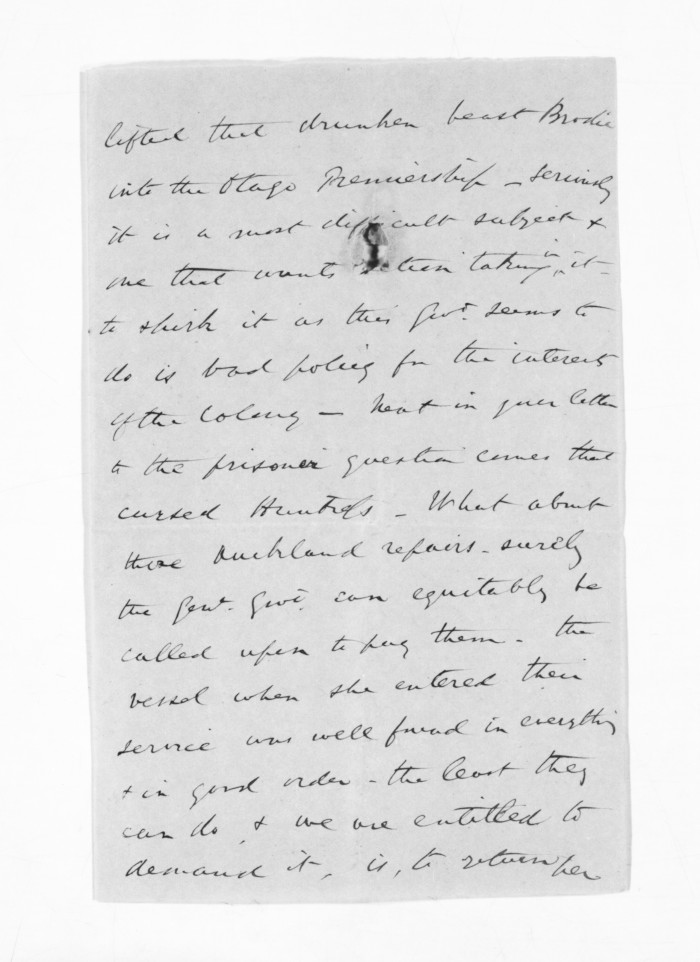 lifted that drunken beast Brodie
into the Otago Premiership - seriously
it is a most difficult subject &
one that wants taking in it -
to shirk it as this Govt. seems to
do is bad policy for the interests
of the Colony - Next in your letter
to the prisoner question comes that
cursed Huntress - What about
those Auckland repairs - surely
the Genl. Govt. can equitably be
called upon to pay them - the
vessel when she entered their
service was well found in everything
& in good order - the least they
can do, & we are entitled to
demand it, is, to return her